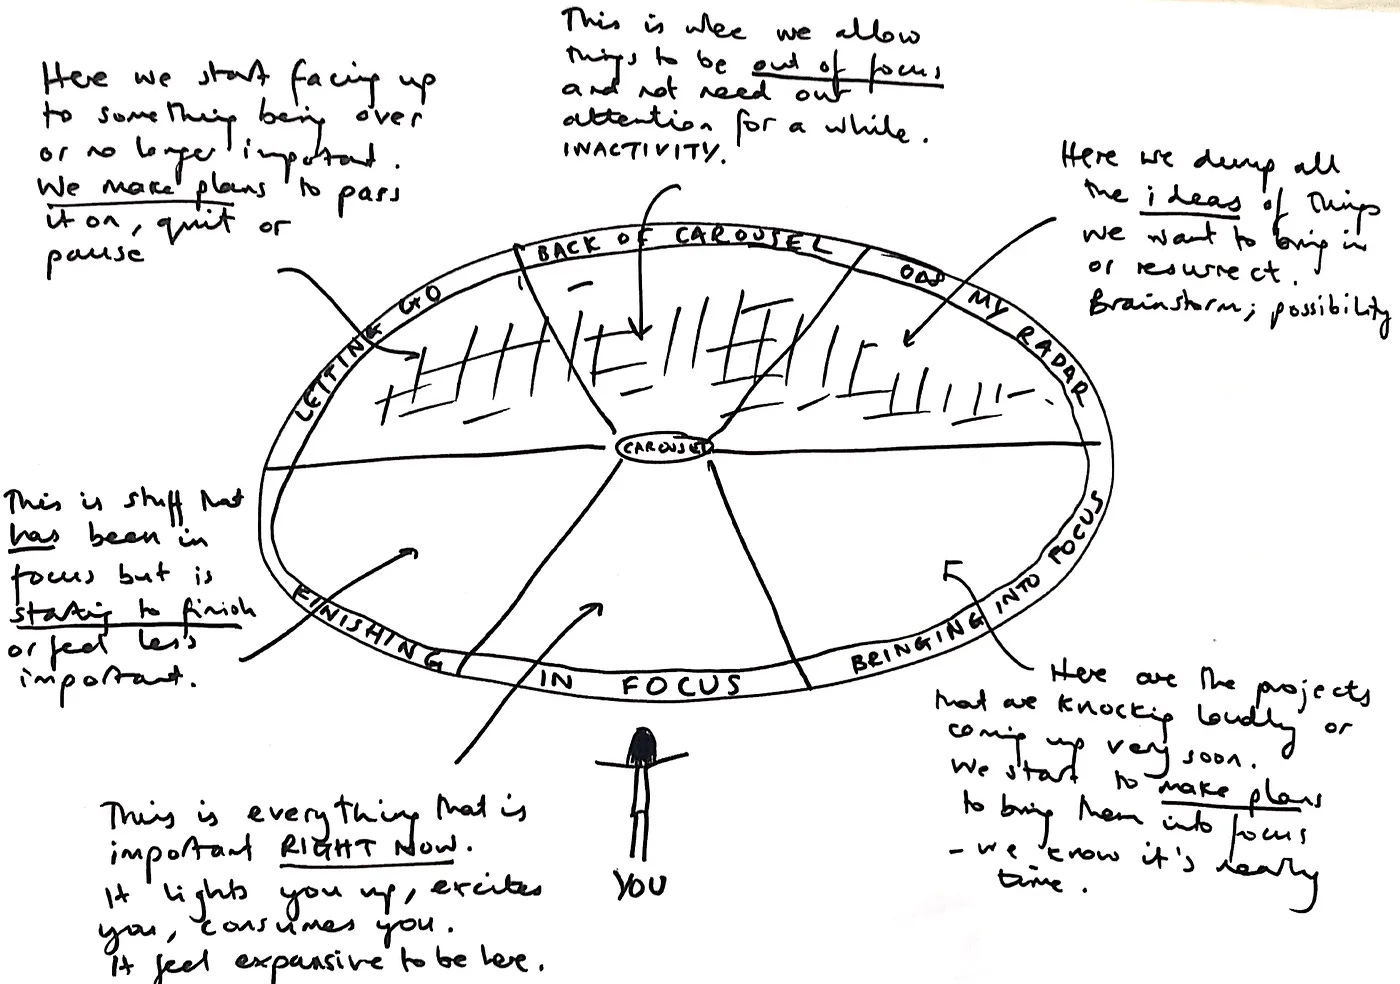 This is whee we allow
things to be out of focus
and not need our
attention for a while.
INACTIVITY.
Here we start facing up
to something being over
or no longer important.
We make plans to pass
it on, quit or
pause
Here we dump all
the ideas of things
we want to bring in
or resurrect.
Brainstorm; possibility
BACK OF CAROUSEL
LETTING GO
ON MY RADAR
CAROUSEL
This is stuff that
has been in
focus but is
starting to finish
or feel less
important.
FINISHING
IN FOCUS
BRINGING INTO FOCUS
Here are the projects
that are knocking loudly or
coming up very soon.
We start to make plans
to bring them into focus
- we know it's nearly
time.
This is everything that is
important RIGHT NOW.
It lights you up, excites
you, consumes you.
It feel expansive to be here.
YOU